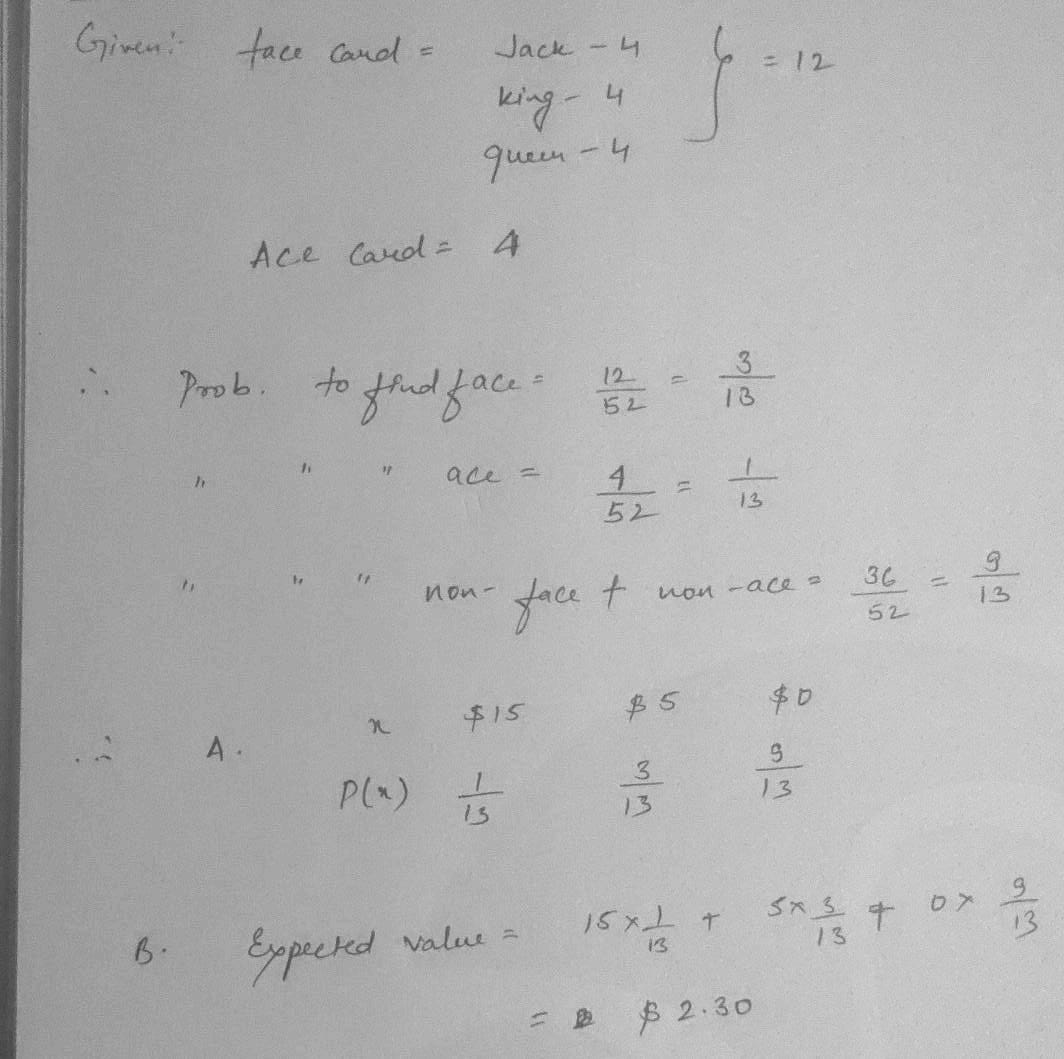 Given:- face card = Jack - 4 } = 12
king - 4
queen - 4
Ace Card = 4
∴ Prob. to find face = 12/52 = 3/13
" " " ace = 4/52 = 1/13
" " " non-face + non-ace = 36/52 = 9/13
∴ A. x $15 $5 $0
P(x) 1/13 3/13 9/13
B. Expected value = 15 × 1/13 + 5 × 3/13 + 0 × 9/13
= $ 2.30